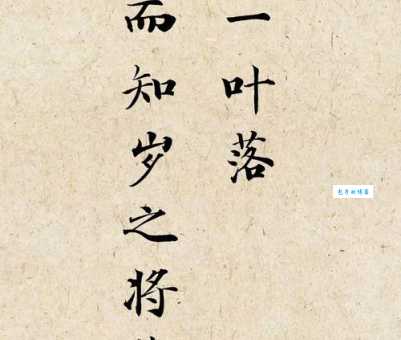 一叶落
而知岁之将